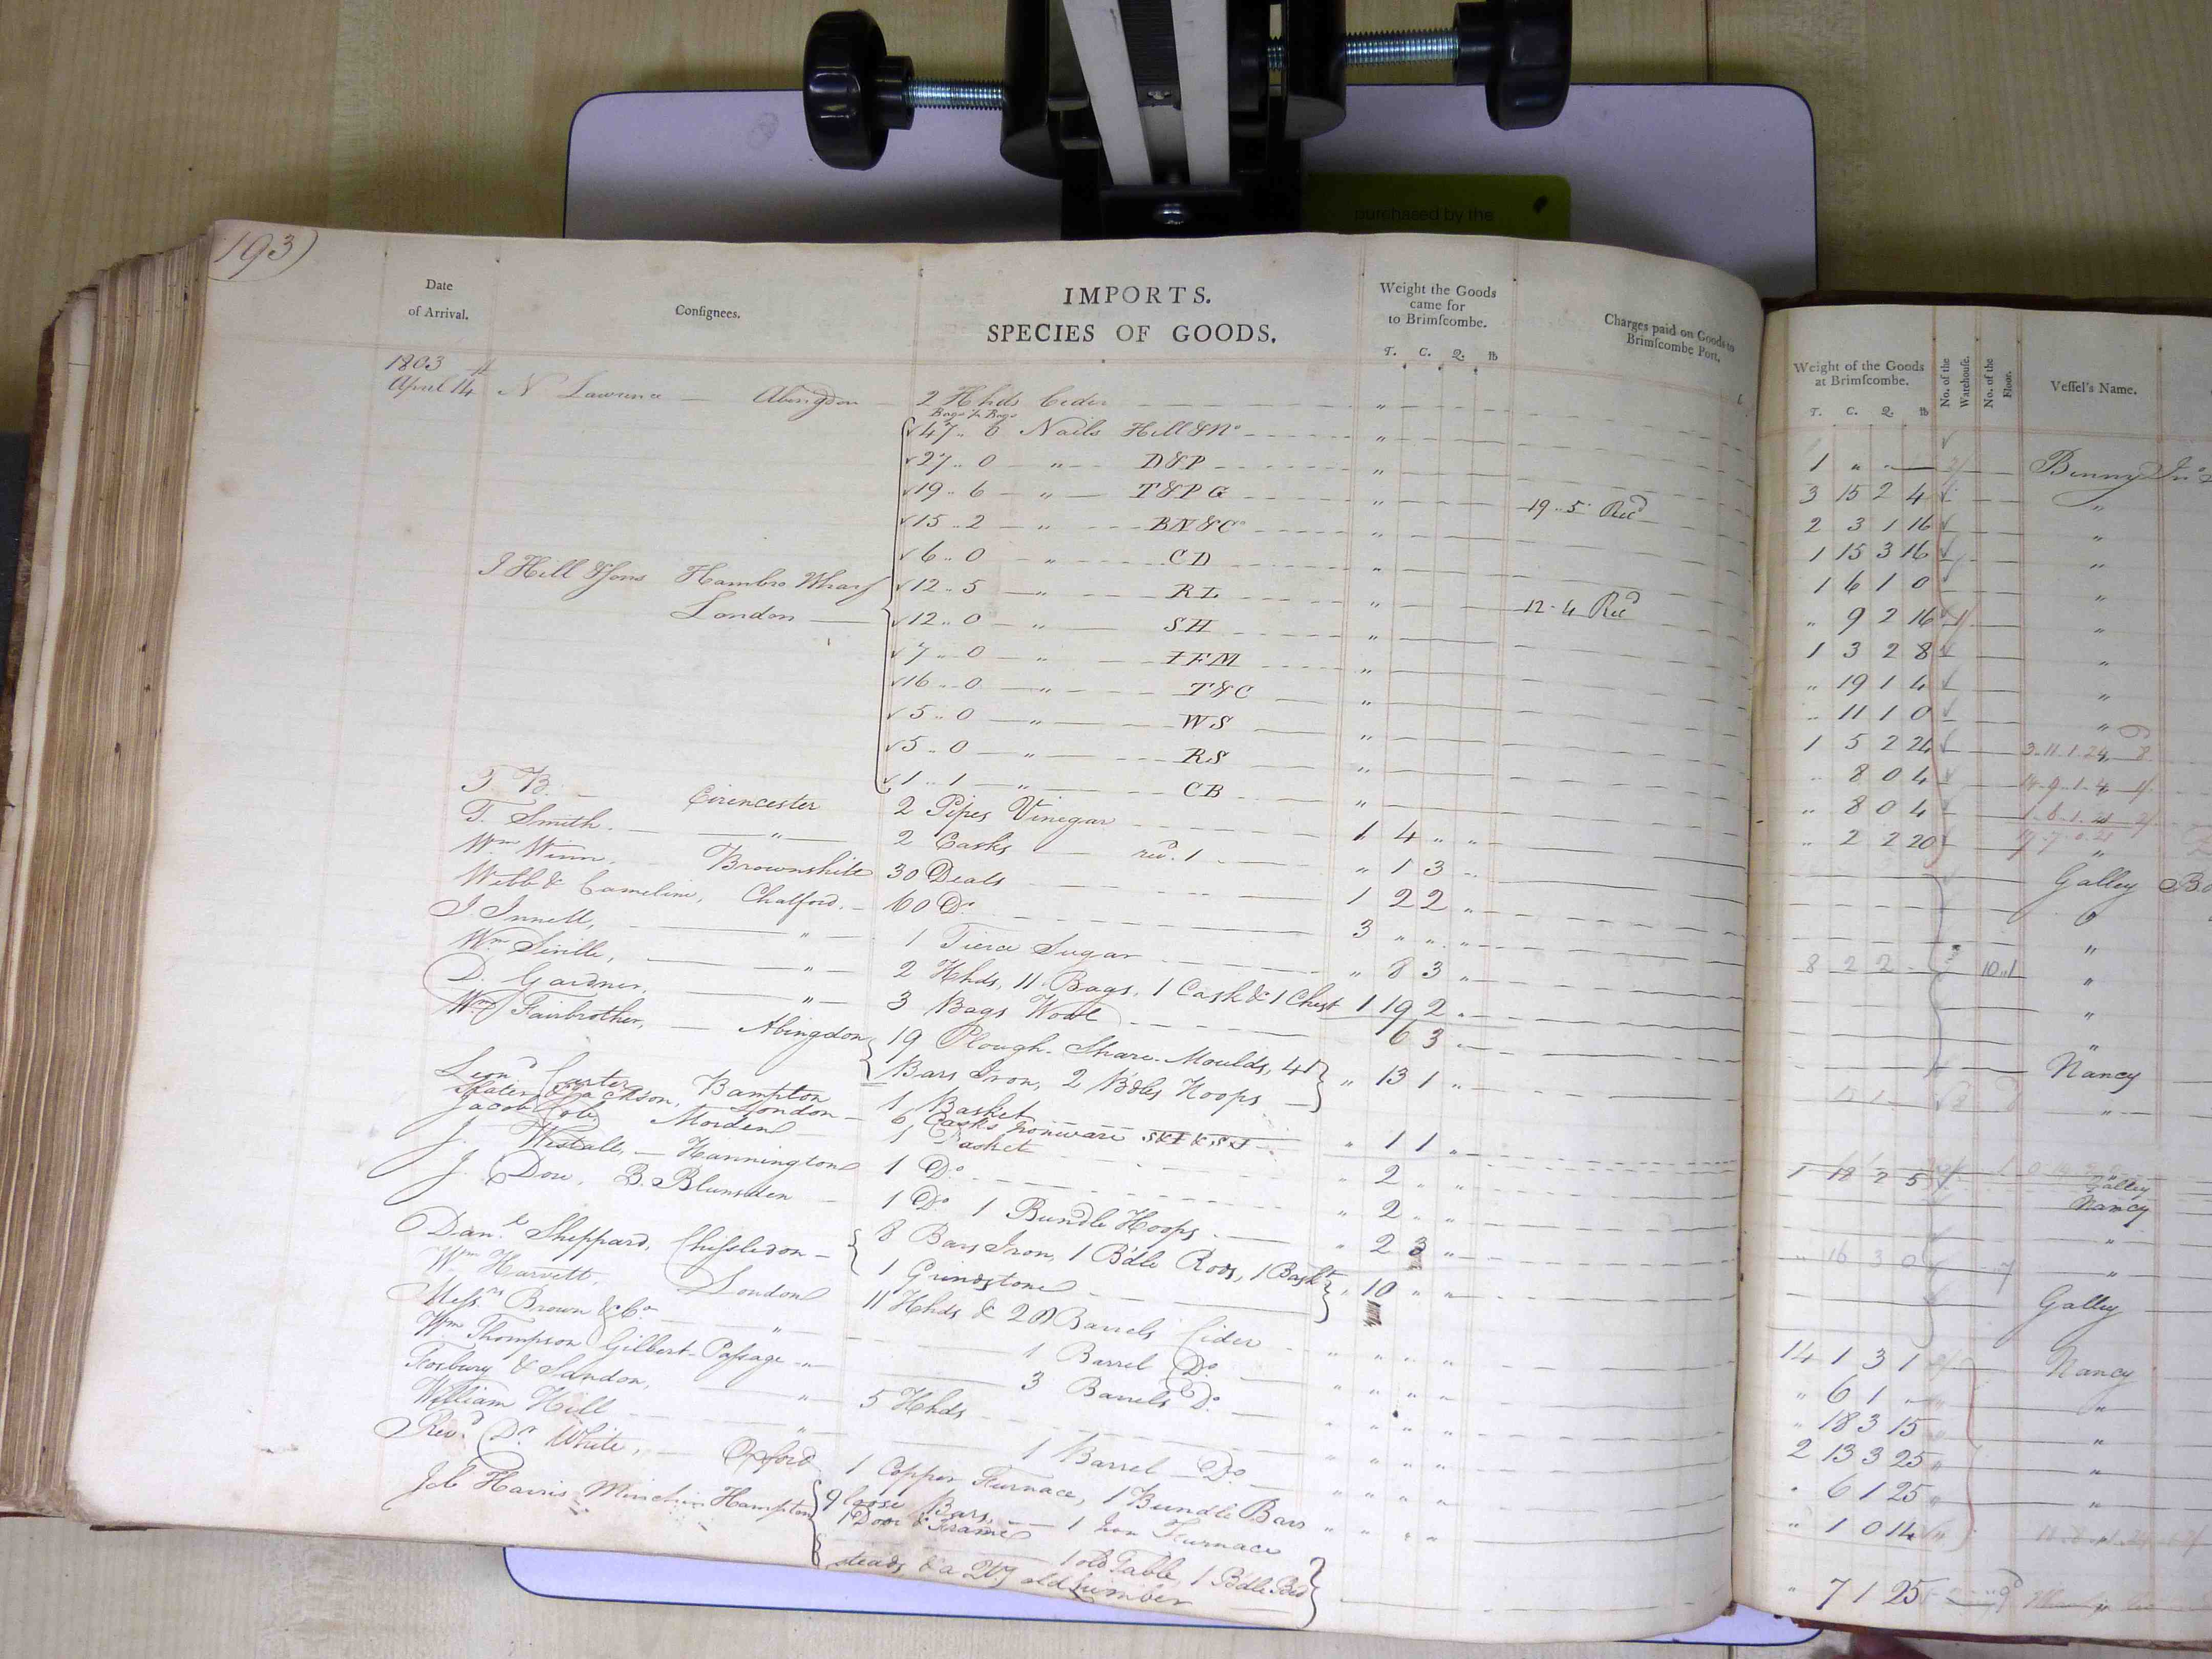 purchased by the
193)
Date of Arrival.
Consignees.
IMPORTS.
SPECIES OF GOODS.
Weight the Goods came for to Brimscombe.
T. C. Q. lb
Charges paid on Goods to Brimscombe Port.
Weight of the Goods at Brimscombe.
T. C. Q. lb
No. of the Warehouse.
No. of the Floor.
Vessel's Name.
1803
April 14 N. Lawrence — Abingdon 2 Hhds Cider 1 Benny
Bags ½ Bags
47 .. 0 Nails Hill & Co 3 15 2 4 "
27 .. 0 " D&P 2 3 1 16 "
19 .. 6 " T&PG 19 .. 5 Recd 1 15 3 16 "
15 .. 2 " BN&Co 1 6 1 0 "
6 .. 0 " CD " 9 2 16 "
J Hill & Sons Hambro Wharf London
12 .. 5 " RL 12 .. 4 Recd 1 3 2 8 "
12 .. 0 " SH " 19 1 4 "
7 .. 0 " IFM " 11 1 0 "
16 .. 0 " T&C 1 5 2 24
5 .. 0 " WS " 8 0 4
5 .. 0 " RS " 8 0 4
1 .. 1 " CB " 2 2 20 "
T. B. — Cirencester 2 Pipes Vinegar 1 4 " " Galley
T. Smith. — " — 2 Casks recd. 1 " 1 3 "
Wm Winn, Brownshill 30 Deals 1 2 2 " "
Webb & Cameline, Chalford. 60 Do 3 " " " "
J. Innell, — " — 1 Tierce Sugar " 8 3 " "
Wm Seville, — " — 2 Hhds, 11 Bags, 1 Cask & 1 Chest 1 19 2 " "
D. Gardner, — " — 3 Bags Wool 6 3 " Nancy
Wm Fairbrother, — Abingdon 19 Plough-Share-Moulds, 41
Bars Iron, 2 Bdles Hoops " 13 1 " "
Leond Carter, Bampton 1 Basket " 1 1 "
Slater & Jackson, London 6 Casks Ironware 1 18 2 5 Galley
Jacob Cole, Morden 1 Basket " 2 " " Nancy
J. Westall, — Hannington 1 Do " 2 " " "
J. Dore, B. Blunsden 1 Do 1 Bundle Hoops " 2 3 " "
Danl Sheppard, Chisledon 8 Bars Iron, 1 Bdle Rods, 1 Baskt
1 Grindstone " 10 " " Galley
Wm Harvett, London 11 Hhds & 20 Barrels Cider 14 1 3 1 Nancy
Messrs Brown & Co — " — 1 Barrel Do " 6 1 " "
Wm Thompson Gilbert-Passage " 3 Barrels Do " 18 3 15 "
Fosbury & Sandon, — " — 5 Hhds 2 13 3 25 "
William Hill " 1 Barrel Do " 6 1 25 "
Revd Dr White, — Oxford 1 Copper Furnace, 1 Bundle Bars " 1 0 14
9 loose Bars, — 1 Iron Furnace
1 Door & Frame
Job Harris Minchin Hampton 1 old Table, 1 Bdle Bed
steads & a Qty old Lumber " 7 1 25